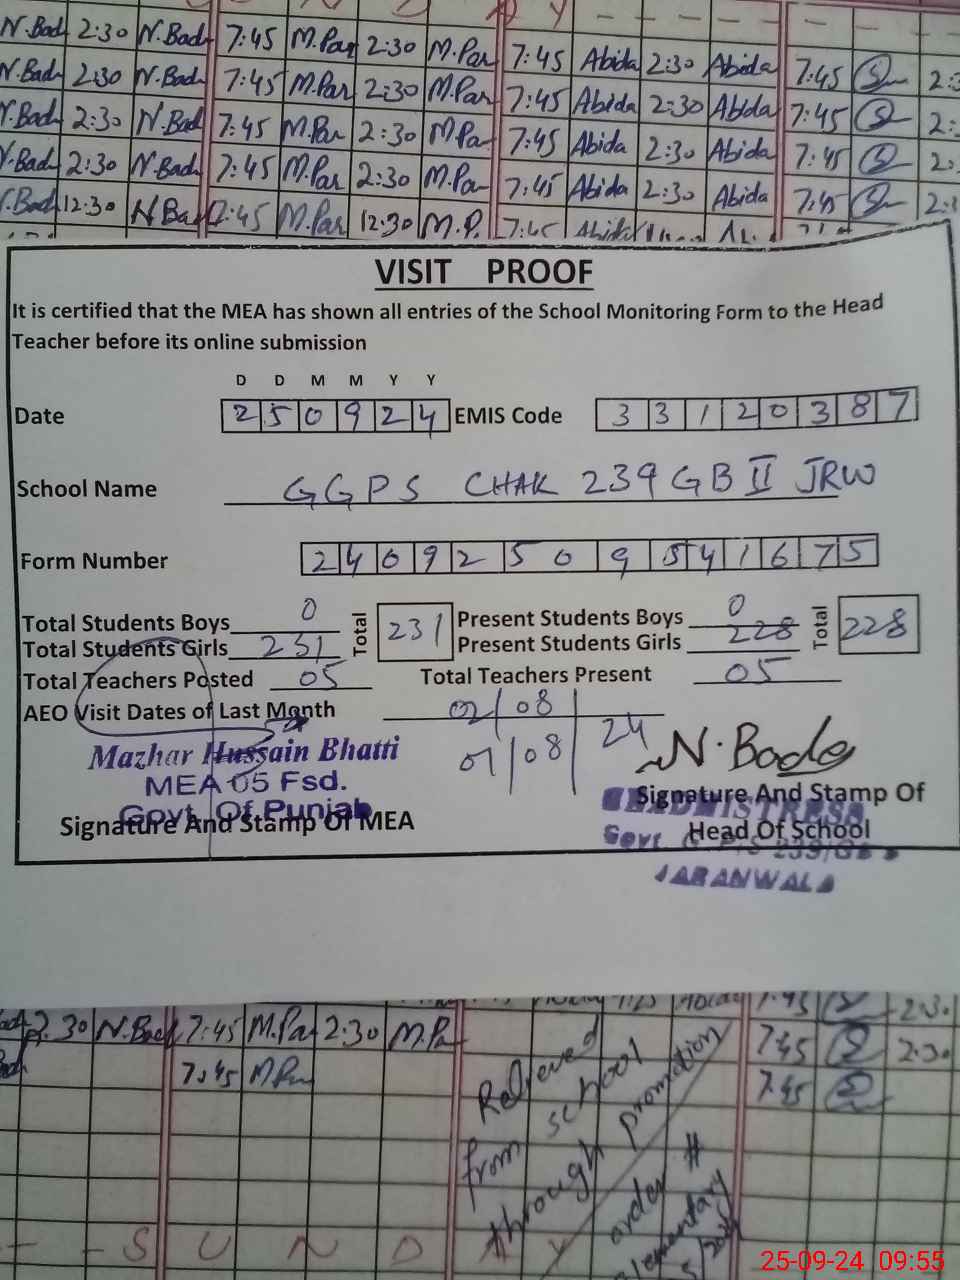 A Y
N.Bad 2:30 N.Bad 7:45 M.Par 2:30 M.Par 7:45 Abida 2:30 Abida 7:45
N.Bad 2:30 N.Bad 7:45 M.Par 2:30 M.Par 7:45 Abida 2:30 Abida 7:45
N.Bad 2:30 N.Bad 7:45 M.Par 2:30 M.Pa 7:45 Abida 2:30 Abida 7:45
N.Bad 2:30 N.Bad 7:45 M.Par 2:30 M.Pa 7:45 Abida 2:30 Abida 7:45
N.Bad 12:30 N Bad 7:45 M.Par 12:30 M.P. 7:45 Abida
VISIT PROOF
It is certified that the MEA has shown all entries of the School Monitoring Form to the Head
Teacher before its online submission
D D M M Y Y
Date 2 5 0 9 2 4 EMIS Code 3 3 1 2 0 3 8 7
School Name GGPS CHAK 239 GB II JRW
Form Number 2 4 0 9 2 5 0 9 5 4 1 6 7 5
Total Students Boys 0 Total 231 Present Students Boys 0 Total 228
Total Students Girls 231 Present Students Girls 228
Total Teachers Posted 05 Total Teachers Present 05
AEO Visit Dates of Last Month 02/08
07/08 24
Mazhar Hussain Bhatti N.Bade
MEA 05 Fsd.
Govt. Of Punjab
Signature And Stamp Of MEA
Signature And Stamp Of
Head Of School
HEADMISTRESS
Govt G.P/S 239/GB
JARANWALA
2.30 N.Bad 7:45 M.Pa 2:30 M.Pa 7:45 2:30
7:45 M Par 7:45 2:30
7:45
Relieved
from school
through promotion
order #
elementary
S U N D A Y
25-09-24 09:55